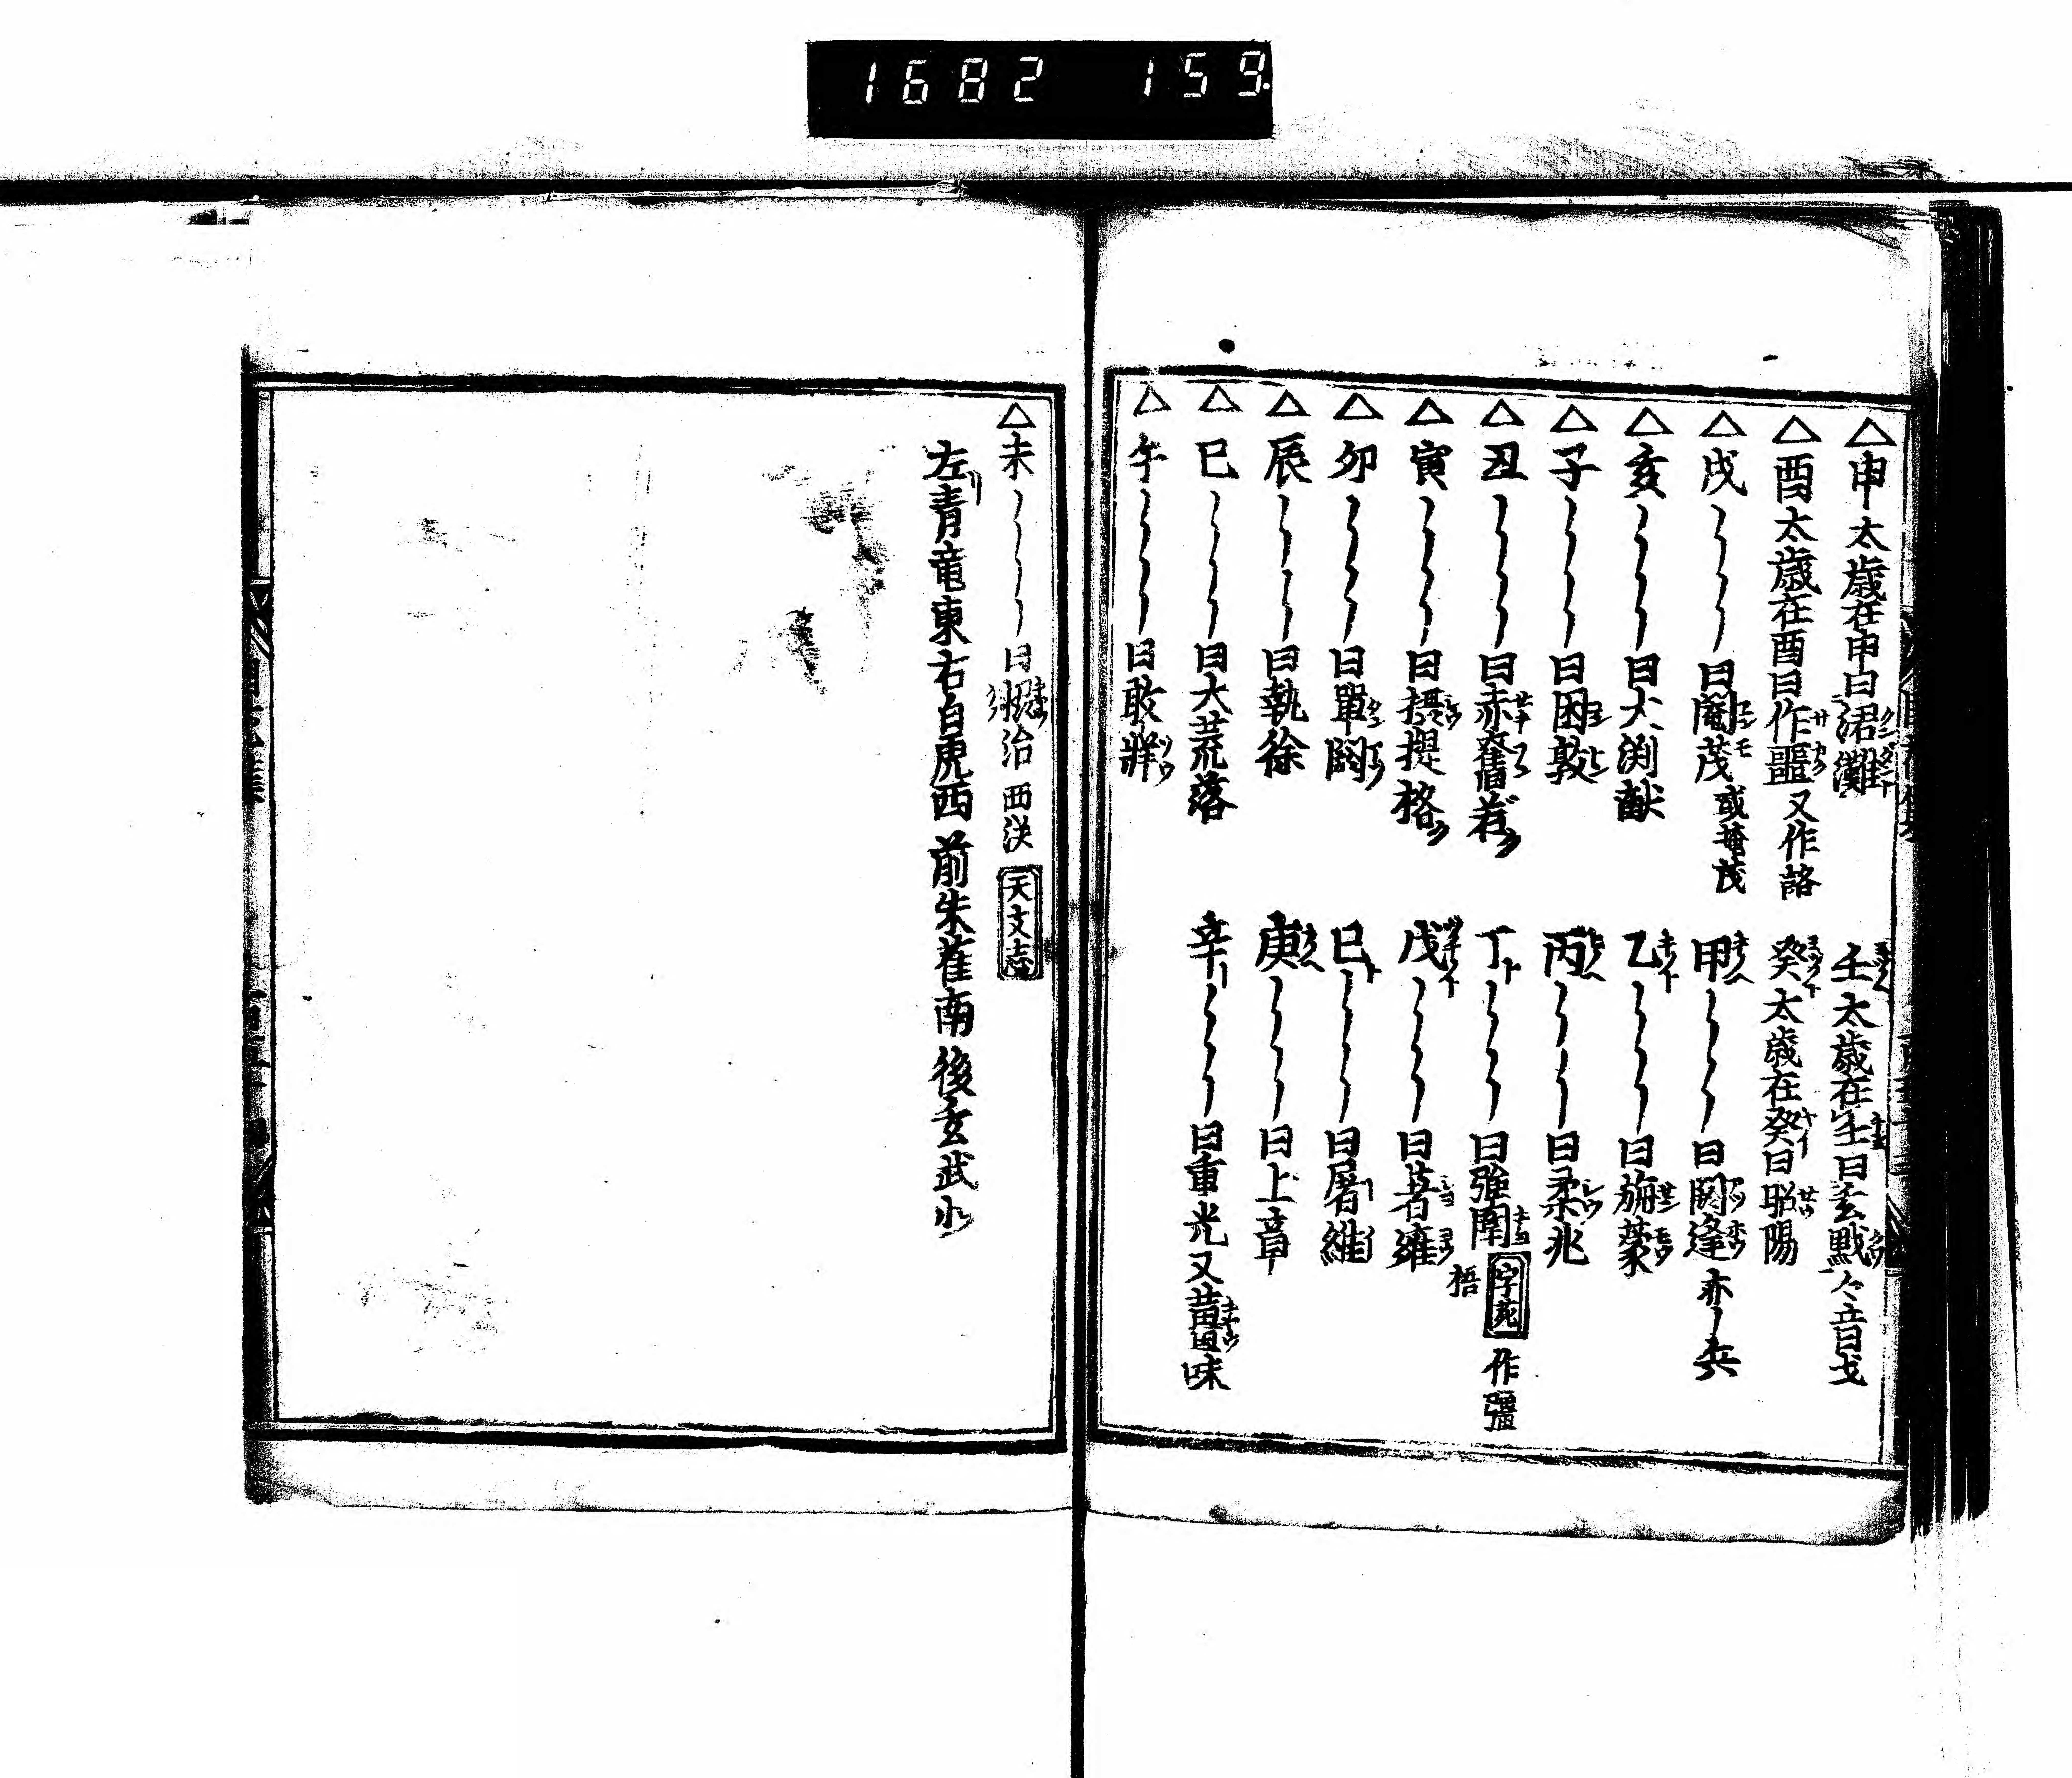 1682 159.
△申太歳在申曰涒灘 壬太歳在壬曰玄黓々音弋
△酉太歳在酉曰作噩又作詻 癸太歳在癸曰昭陽
△戌〻〻〻〻曰閹茂或菴茂 甲〻〻〻〻曰閼逢亦〻兵
△亥〻〻〻〻曰大渕献 乙〻〻〻〻曰旃蒙
△子〻〻〻〻曰困敦 丙〻〻〻〻曰柔兆
△丑〻〻〻〻曰赤奮若 丁〻〻〻〻曰強圉字苑作彊梧
△寅〻〻〻〻曰摂提格 戊〻〻〻〻曰著雍
△卯〻〻〻〻曰單閼 巳〻〻〻〻曰屠維
△辰〻〻〻〻曰執徐 庚〻〻〻〻曰上章
△巳〻〻〻〻曰大荒落 辛〻〻〻〻曰重光又
△午〻〻〻〻曰敦牂
△未〻〻〻〻曰協洽 天文志
左青竜東右白虎西前朱雀南後玄武北